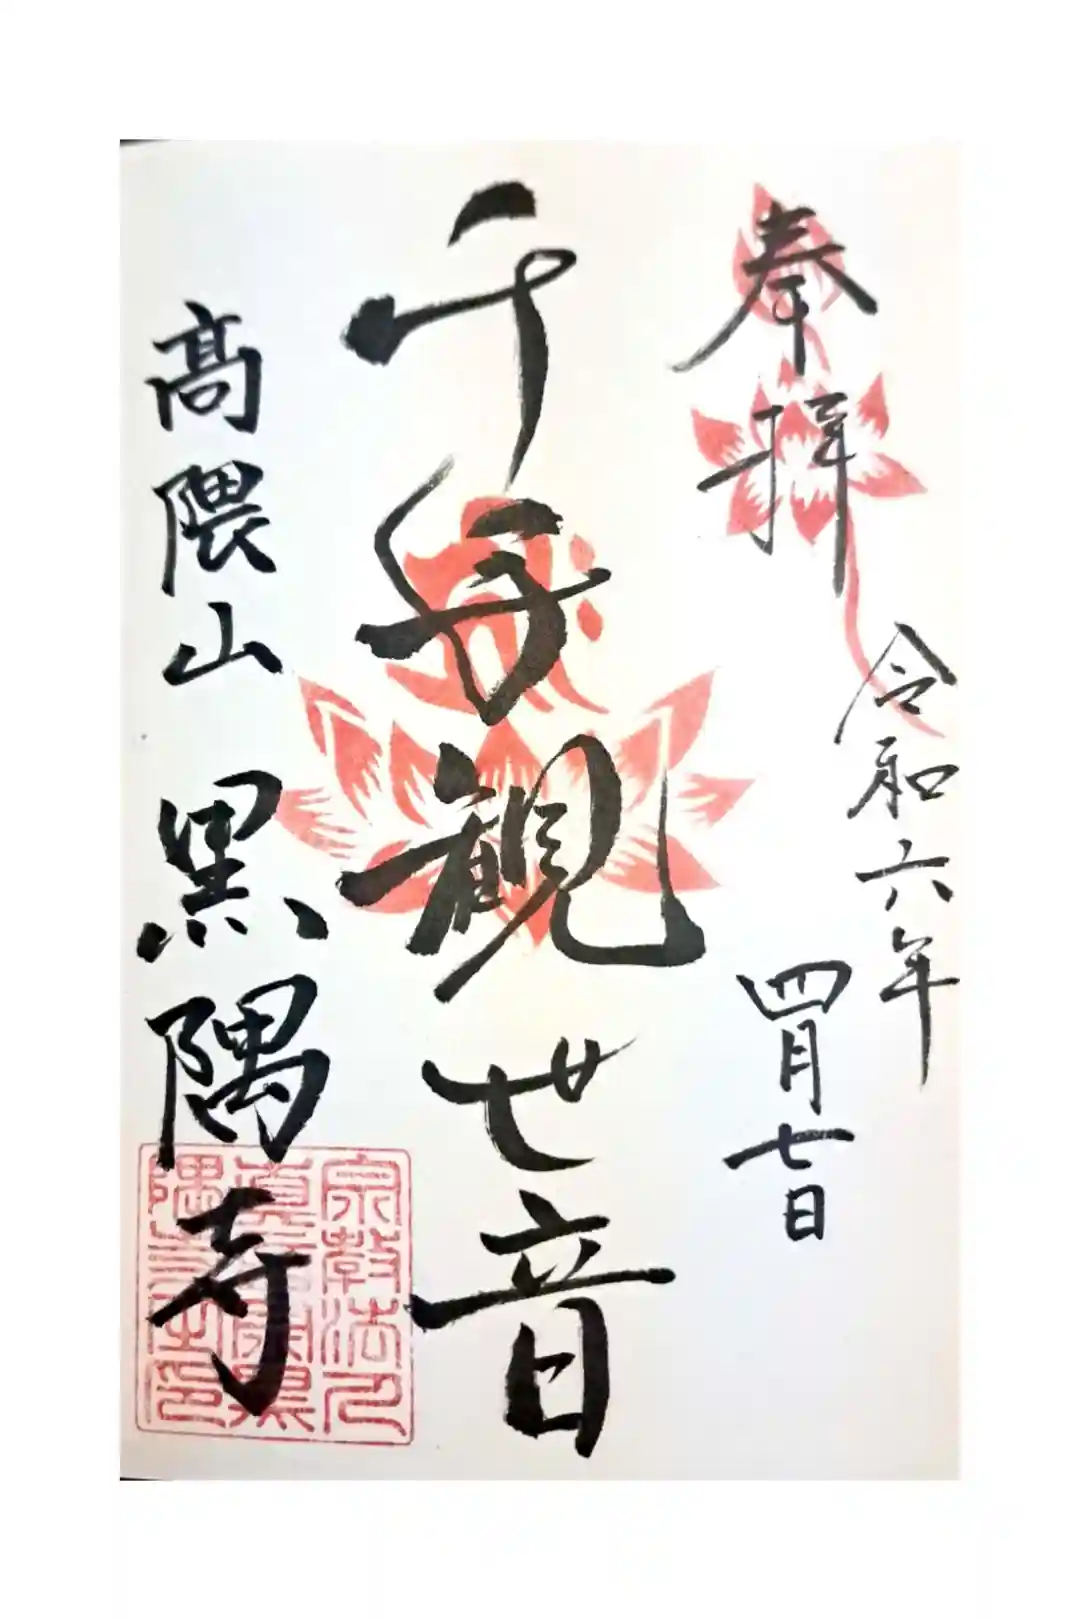 奉拝
令和六年
四月七日
千手観世音
高隈山 黒隅寺
宗教法人